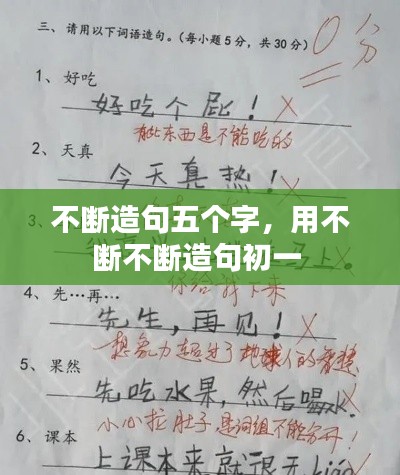 三、请用以下词语造句。(每小题5分，共30分)
0分
1、好吃
好吃个屁！
有些东西是不能吃的
2、天真
今天真热！
3、
不断造句五个字，用不
断不断造句初一
马上。
你给我下来
4、先…再…
先生，再见！
想象力超过了地球人的智慧
5、果然
先吃水果，然后喝
小心拉肚子 是词组不能分开！
6、课本
上课本来就很